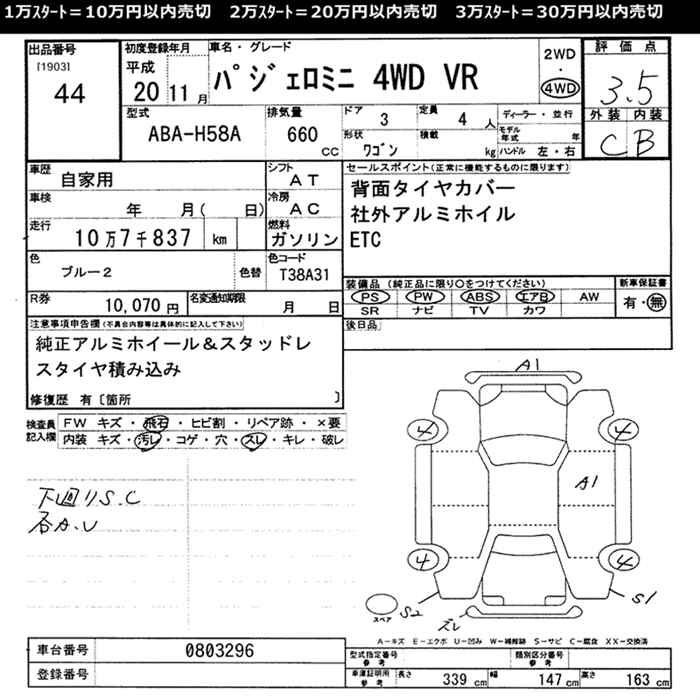 1万ｽﾀｰﾄ＝10万円以内売切　2万ｽﾀｰﾄ＝20万円以内売切　3万ｽﾀｰﾄ＝30万円以内売切
出品番号
[1903]
44
初度登録年月
平成
20 11 月
車名・グレード
ﾊﾟｼﾞｪﾛﾐﾆ 4WD VR
2WD
4WD
評価点
3.5
外装 内装
C B
型式
ABA-H58A
排気量
660 cc
ドア 3
定員 4 人
形状 ﾜｺﾞﾝ
積載 kg
ディーラー・並行
モデル年式 年
ハンドル 左・右
車歴 自家用
シフト AT
車検 年 月( 日)
冷房 AC
走行 10万7千837 km
燃料 ガソリン
色 ブルー2
色替
色コード T38A31
R券 10,070円
名変通知期限 月 日
セールスポイント(正常に機能するものに限ります)
背面タイヤカバー
社外アルミホイル
ETC
装備品 (純正品に限り○をつけてください)
PS PW ABS エアB AW
SR ナビ TV カワ
新車保証書
有・無
後日品
注意事項申告欄(不具合内容等は具体的に記入して下さい)
純正アルミホイール＆スタッドレ
スタイヤ積み込み
修復歴 有〔箇所 〕
検査員記入欄
FW キズ・飛石・ヒビ割・リペア跡・×要
内装 キズ・汚レ・コゲ・穴・スレ・キレ・破レ
下廻りS.C
各A.U
A1
4
4
A1
4
4
スペア
S2
ズレ
S1
A－キズ E－エクボ U－凹み W－補修跡 S－サビ C－腐食 XX－交換済
車台番号 0803296
登録番号
型式指定番号 参考
類別区分番号 参考
車庫証明用 参考
長さ 339 cm
幅 147 cm
高さ 163 cm